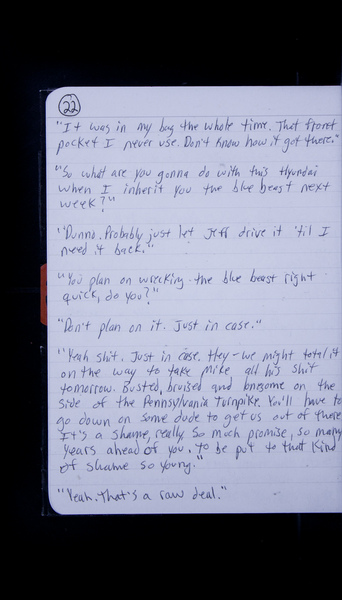 22
"It was in my bag the whole time. That front
pocket I never use. Don't know how it got there."
"So what are you gonna do with this Hyundai
when I inherit you the blue beast next
week?"
"Dunno. Probably just let Jeff drive it 'til I
need it back."
"You plan on wrecking the blue beast right
quick, do you?"
"Don't plan on it. Just in case."
"Yeah shit. Just in case. they - we might total it
on the way to take Mike all his shit
tomorrow. Busted, bruised and lonesome on the
side of the Pennsylvania Turnpike. You'll have to
go down on some dude to get us out of there
It's a shame, really. So much promise, so many
years ahead of you. To be put to that kind
of shame so young."
"Yeah. That's a raw deal."